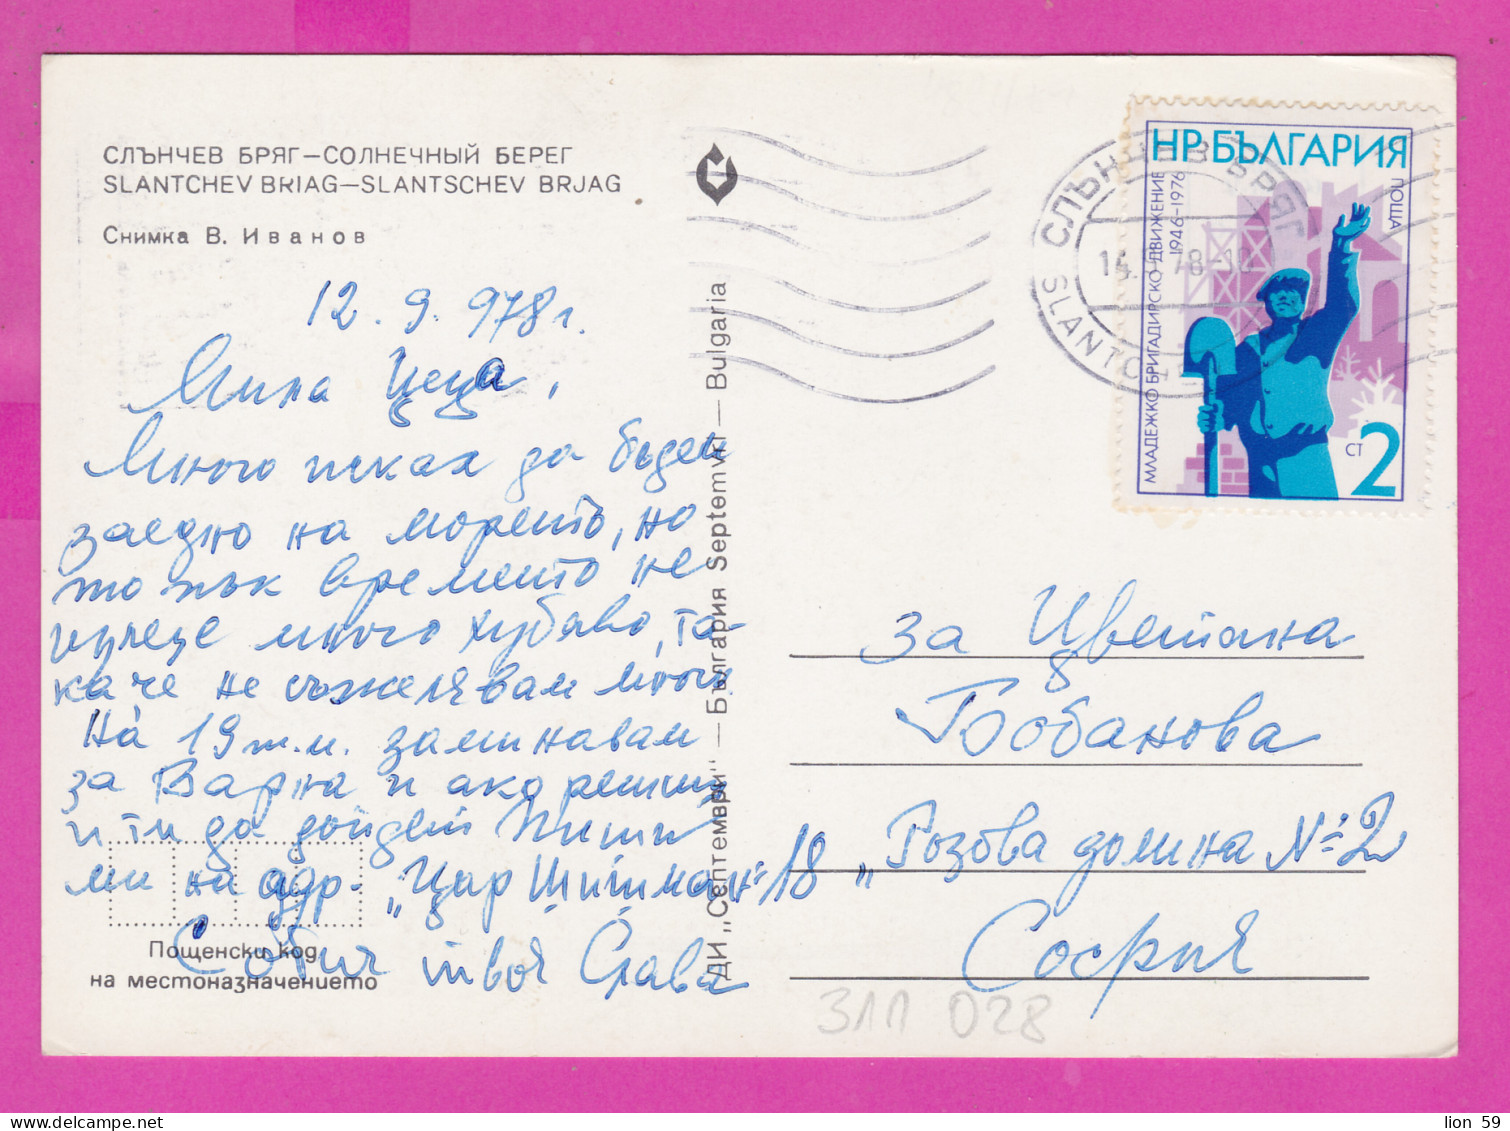 СЛЪНЧЕВ БРЯГ—СОЛНЕЧНЫЙ БЕРЕГ
SLANTCHEV BRIAG—SLANTSCHEV BRJAG
Снимка В. Иванов
12. 9. 978 г.
Мила Цеца,
Много исках да бъдем
заедно на морето, но
то пък времето не
излезе много хубаво, та-
ка че не съжелявам много.
На 19 т.м. заминавам
за Варна и ако решиш
и ти да дойдеш пиши
ми на адр. „Цар Шишман" № 18
София твоя Слава
Пощенски код
на местоназначението
ДИ „Септември" — България Septemvri — Bulgaria
НР БЪЛГАРИЯ
ПОЩА
МЛАДЕЖКО БРИГАДИРСКО ДВИЖЕНИЕ
1946-1976
СТ 2
СЛЪНЧЕВ БРЯГ
14. 78-18
SLANTCH
за Цветана
Бобанова
„Розова долина № 2
София
3ЛП 028
lion 59